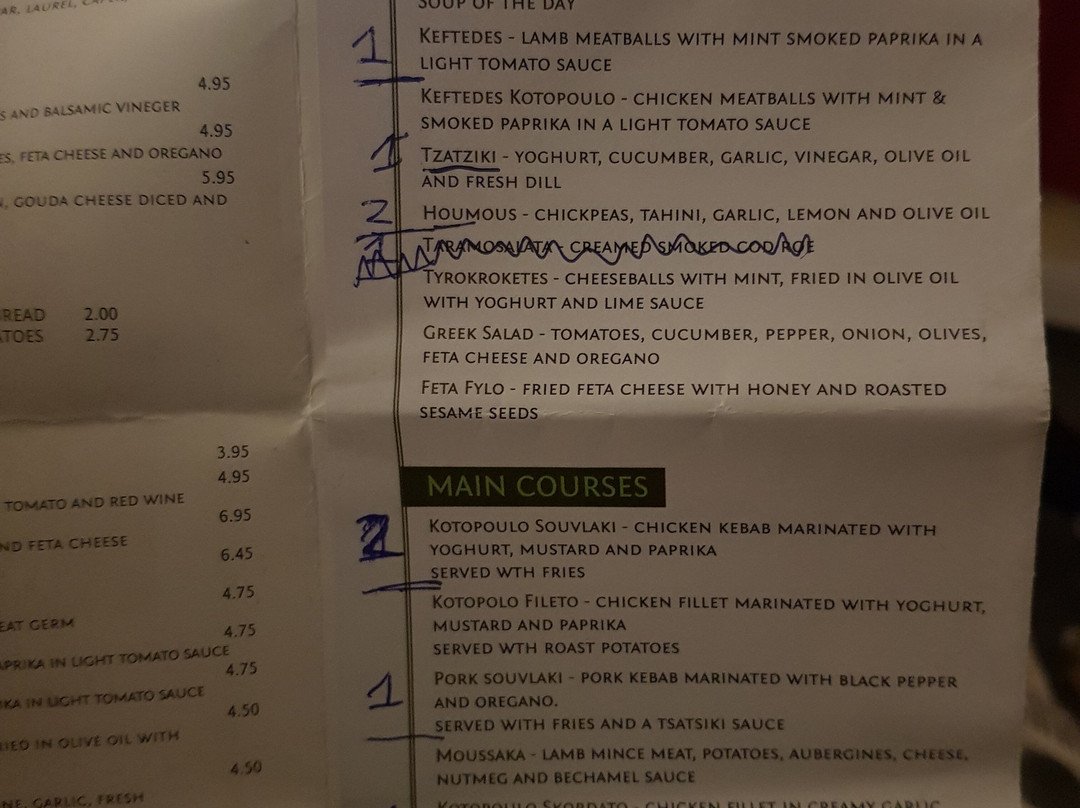 4.95
S AND BALSAMIC VINEGER
4.95
ES, FETA CHEESE AND OREGANO
5.95
, GOUDA CHEESE DICED AND
READ 2.00
TOES 2.75
3.95
4.95
TOMATO AND RED WINE
6.95
ND FETA CHEESE
6.45
4.75
EAT GERM
4.75
APRIKA IN LIGHT TOMATO SAUCE
4.75
KA IN LIGHT TOMATO SAUCE
4.50
IED IN OLIVE OIL WITH
4.50
NE, GARLIC, FRESH
SOUP OF THE DAY
1 KEFTEDES - LAMB MEATBALLS WITH MINT SMOKED PAPRIKA IN A
LIGHT TOMATO SAUCE
KEFTEDES KOTOPOULO - CHICKEN MEATBALLS WITH MINT &
SMOKED PAPRIKA IN A LIGHT TOMATO SAUCE
1 TZATZIKI - YOGHURT, CUCUMBER, GARLIC, VINEGAR, OLIVE OIL
AND FRESH DILL
2 HOUMOUS - CHICKPEAS, TAHINI, GARLIC, LEMON AND OLIVE OIL
TARAMOSALATA - CREAMED SMOKED COD ROE
TYROKROKETES - CHEESEBALLS WITH MINT, FRIED IN OLIVE OIL
WITH YOGHURT AND LIME SAUCE
GREEK SALAD - TOMATOES, CUCUMBER, PEPPER, ONION, OLIVES,
FETA CHEESE AND OREGANO
FETA FYLO - FRIED FETA CHEESE WITH HONEY AND ROASTED
SESAME SEEDS
MAIN COURSES
2 KOTOPOULO SOUVLAKI - CHICKEN KEBAB MARINATED WITH
YOGHURT, MUSTARD AND PAPRIKA
SERVED WTH FRIES
KOTOPOLO FILETO - CHICKEN FILLET MARINATED WITH YOGHURT,
MUSTARD AND PAPRIKA
SERVED WTH ROAST POTATOES
1 PORK SOUVLAKI - PORK KEBAB MARINATED WITH BLACK PEPPER
AND OREGANO.
SERVED WITH FRIES AND A TSATSIKI SAUCE
MOUSSAKA - LAMB MINCE MEAT, POTATOES, AUBERGINES, CHEESE,
NUTMEG AND BECHAMEL SAUCE
KOTOPOULO SKORDATO - CHICKEN FILLET IN CREAMY GARLIC